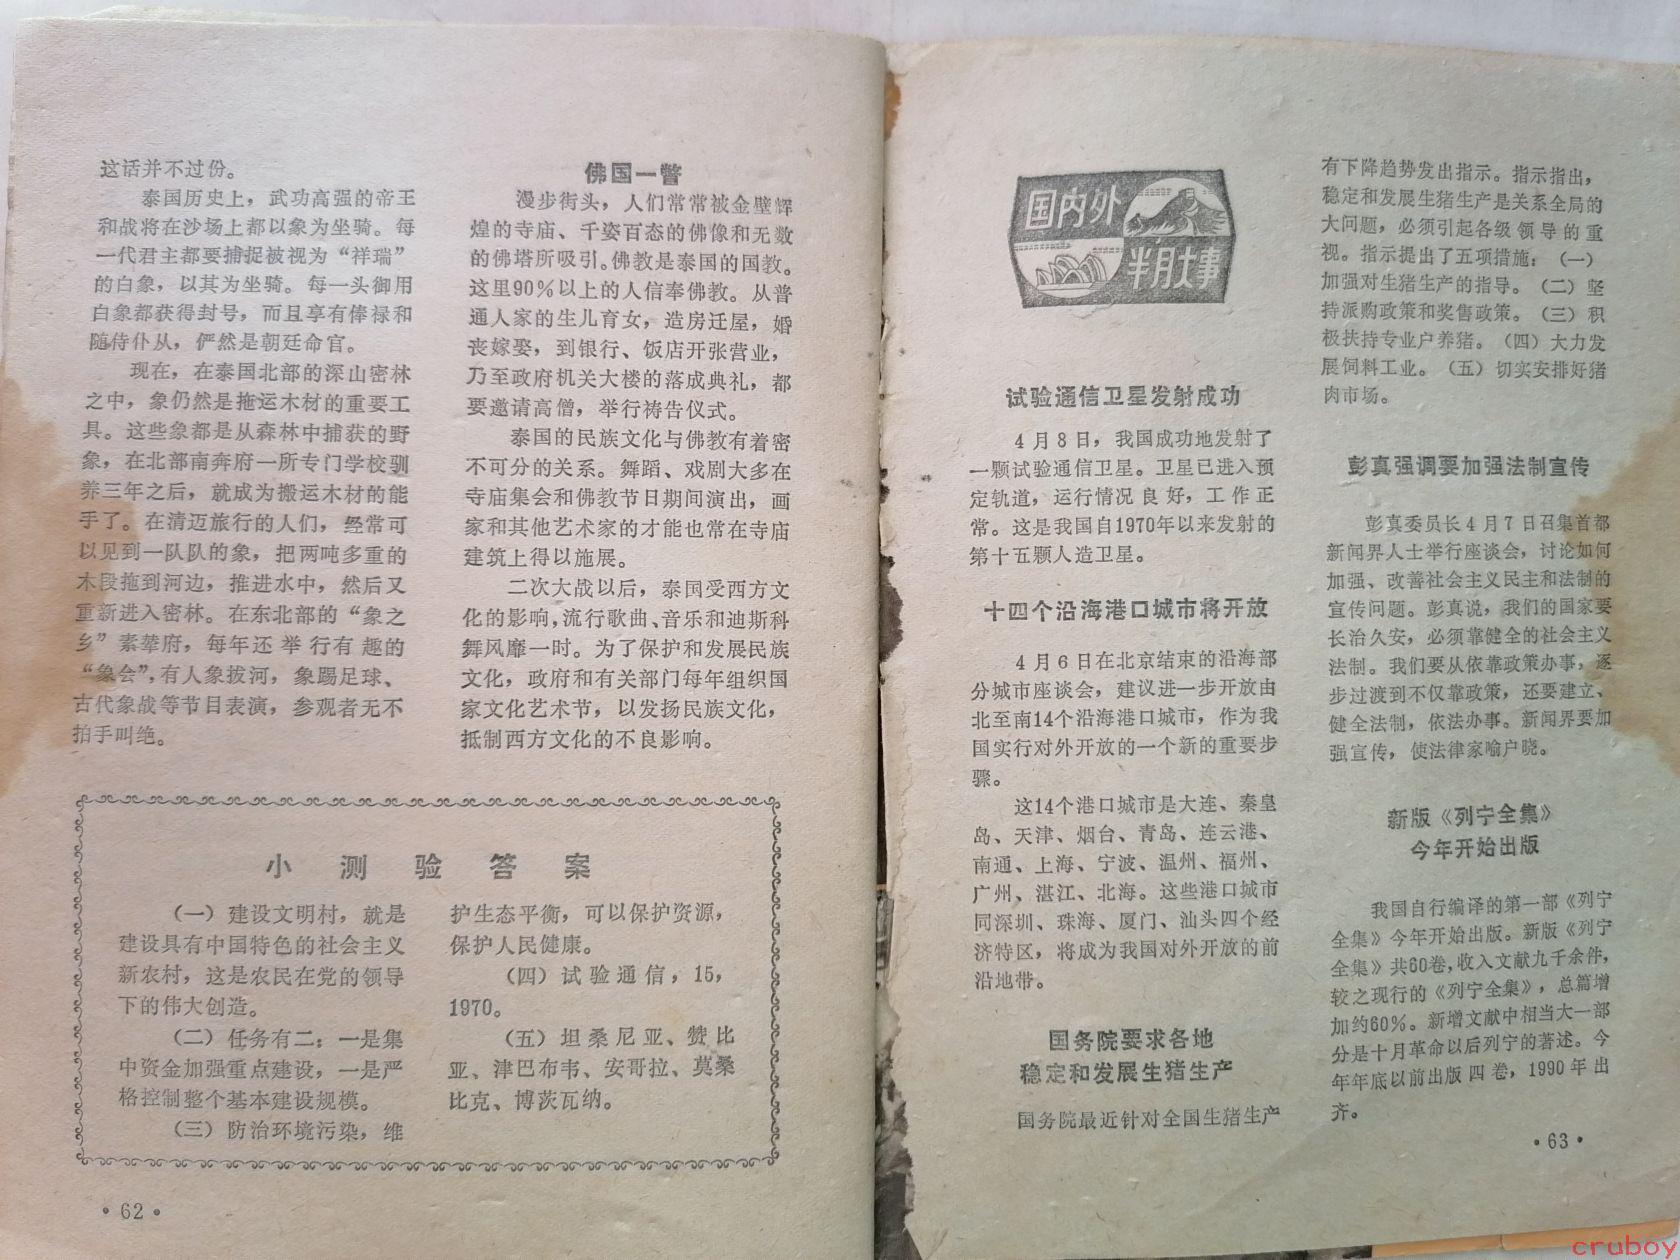 这话并不过份。
泰国历史上，武功高强的帝王
和战将在沙场上都以象为坐骑。每
一代君主都要捕捉被视为“祥瑞”
的白象，以其为坐骑。每一头御用
白象都获得封号，而且享有俸禄和
随侍仆从，俨然是朝廷命官。
现在，在泰国北部的深山密林
之中，象仍然是拖运木材的重要工
具。这些象都是从森林中捕获的野
象，在北部南奔府一所专门学校驯
养三年之后，就成为搬运木材的能
手了。在清迈旅行的人们，经常可
以见到一队队的象，把两吨多重的
木段拖到河边，推进水中，然后又
重新进入密林。在东北部的“象之
乡”素辇府，每年还举行有趣的
“象会”，有人象拔河，象踢足球、
古代象战等节目表演，参观者无不
拍手叫绝。
佛国一瞥
漫步街头，人们常常被金壁辉
煌的寺庙、千姿百态的佛像和无数
的佛塔所吸引。佛教是泰国的国教。
这里90％以上的人信奉佛教。从普
通人家的生儿育女，造房迁屋，婚
丧嫁娶，到银行、饭店开张营业，
乃至政府机关大楼的落成典礼，都
要邀请高僧，举行祷告仪式。
泰国的民族文化与佛教有着密
不可分的关系。舞蹈、戏剧大多在
寺庙集会和佛教节日期间演出，画
家和其他艺术家的才能也常在寺庙
建筑上得以施展。
二次大战以后，泰国受西方文
化的影响，流行歌曲、音乐和迪斯科
舞风靡一时。为了保护和发展民族
文化，政府和有关部门每年组织国
家文化艺术节，以发扬民族文化，
抵制西方文化的不良影响。
小测验答案
（一）建设文明村，就是
建设具有中国特色的社会主义
新农村，这是农民在党的领导
下的伟大创造。
（二）任务有二：一是集
中资金加强重点建设，一是严
格控制整个基本建设规模。
（三）防治环境污染，维
护生态平衡，可以保护资源，
保护人民健康。
（四）试验通信，15，
1970。
（五）坦桑尼亚、赞比
亚、津巴布韦、安哥拉、莫桑
比克、博茨瓦纳。
·62·
国内外
半月大事
试验通信卫星发射成功
4月8日，我国成功地发射了
一颗试验通信卫星。卫星已进入预
定轨道，运行情况良好，工作正
常。这是我国自1970年以来发射的
第十五颗人造卫星。
十四个沿海港口城市将开放
4月6日在北京结束的沿海部
分城市座谈会，建议进一步开放由
北至南14个沿海港口城市，作为我
国实行对外开放的一个新的重要步
骤。
这14个港口城市是大连、秦皇
岛、天津、烟台、青岛、连云港、
南通、上海、宁波、温州、福州、
广州、湛江、北海。这些港口城市
同深圳、珠海、厦门、汕头四个经
济特区，将成为我国对外开放的前
沿地带。
国务院要求各地
稳定和发展生猪生产
国务院最近针对全国生猪生产
有下降趋势发出指示。指示指出，
稳定和发展生猪生产是关系全局的
大问题，必须引起各级领导的重
视。指示提出了五项措施：（一）
加强对生猪生产的指导。（二）坚
持派购政策和奖售政策。（三）积
极扶持专业户养猪。（四）大力发
展饲料工业。（五）切实安排好猪
肉市场。
彭真强调要加强法制宣传
彭真委员长4月7日召集首都
新闻界人士举行座谈会，讨论如何
加强、改善社会主义民主和法制的
宣传问题。彭真说，我们的国家要
长治久安，必须靠健全的社会主义
法制。我们要从依靠政策办事，逐
步过渡到不仅靠政策，还要建立、
健全法制，依法办事。新闻界要加
强宣传，使法律家喻户晓。
新版《列宁全集》
今年开始出版
我国自行编译的第一部《列宁
全集》今年开始出版。新版《列宁
全集》共60卷，收入文献九千余件，
较之现行的《列宁全集》，总篇增
加约60％。新增文献中相当大一部
分是十月革命以后列宁的著述。今
年年底以前出版四卷，1990年出
齐。
·63·
cruboy